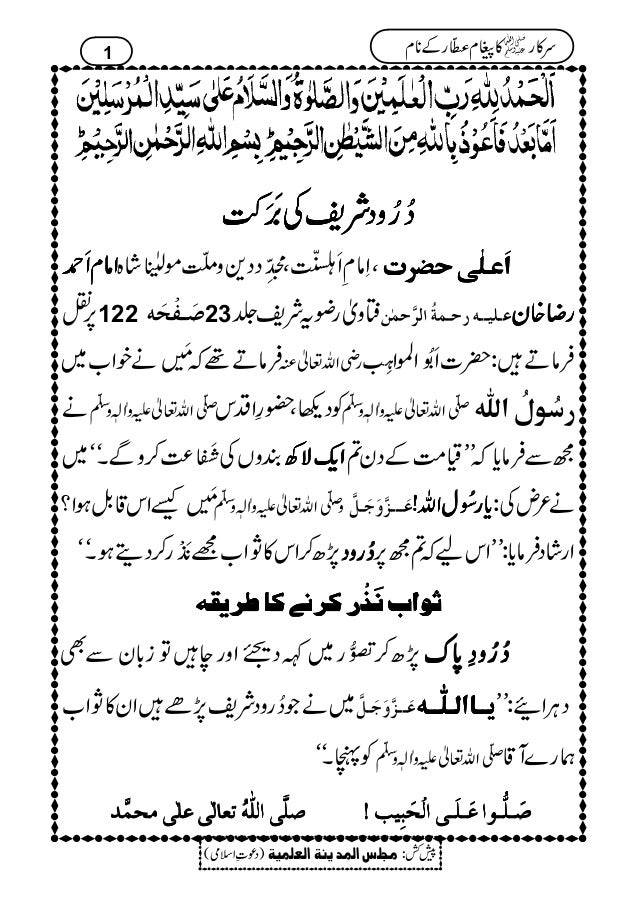 سرکار ﷺ کا پیغام عطّار کے نام
1
اَلْحَمْدُ لِلّٰهِ رَبِّ الْعٰلَمِیْنَ وَالصَّلٰوةُ وَالسَّلَامُ عَلٰی سَیِّدِ الْمُرْسَلِیْنَ
اَمَّا بَعْدُ فَاَعُوْذُ بِاللّٰهِ مِنَ الشَّیْطٰنِ الرَّجِیْمِؕ بِسْمِ اللّٰهِ الرَّحْمٰنِ الرَّحِیْمِؕ
دُرُود شریف کی بَرَکت
اَعلٰی حضرت ، اِمامِ اَہلسنّت، مجدِّدِ دین وملّت مولیٰنا شاہ امام اَحمد
رضا خان علیہ رحمۃُ الرَّحمٰن فتاویٰ رضویہ شریف جلد 23 صَفْحَہ 122 پر نقل
فرماتے ہیں: حضرت اَبُو المواہِب رضی اللہ تعالیٰ عنہ فرماتے تھے کہ مَیں نے خواب میں
رسُولُ اللہ صلّی اللہ تعالیٰ علیہ واٰلہٖ وسلّم کو دیکھا، حضورِ اقدس صلّی اللہ تعالیٰ علیہ واٰلہٖ وسلّم نے
مجھ سے فرمایا کہ ’’قیامت کے دن تم ایک لاکھ بندوں کی شَفاعت کرو گے۔‘‘ میں
نے عرض کی: یارسُول اللہ! عَزَّوَجَلَّ وصلّی اللہ تعالیٰ علیہ واٰلہٖ وسلّم مَیں کیسے اس قابل ہوا؟
ارشاد فرمایا: ’’اس لیے کہ تم مجھ پر دُرود پڑھ کر اس کا ثواب مجھے نَذْر کردیتے ہو۔‘‘
ثواب نَذْر کرنے کا طریقہ
دُرُودِ پاک پڑھ کر تصوُّر میں کہہ دیجئے اور چاہیں تو زبان سے بھی
دہرایئے: ’’یا اللہ عَزَّوَجَلَّ میں نے جو دُرود شریف پڑھے ہیں ان کا ثواب
ہمارے آقا صلّی اللہ تعالیٰ علیہ واٰلہٖ وسلّم کو پہنچا۔‘‘
صَلُّوا عَلَی الْحَبِیب ! صلَّی اللہُ تعالٰی علٰی محمَّد
پیش کش: مجلس المدینة العلمیة (دعوتِ اسلامی)